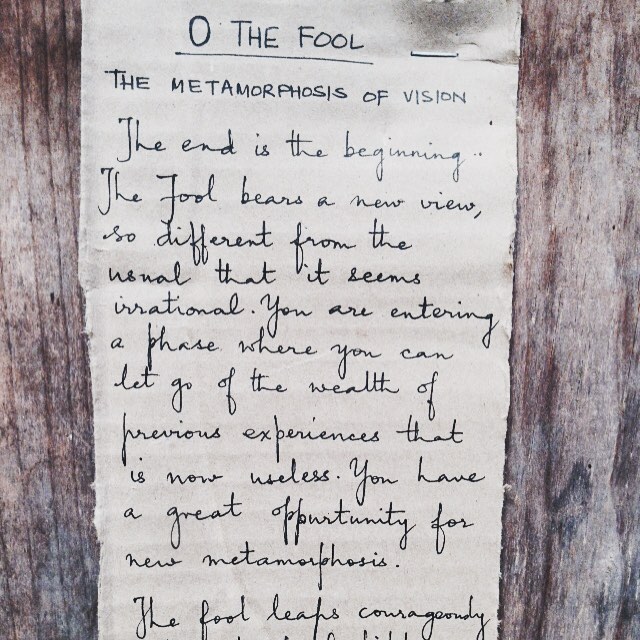 0 THE FOOL
THE METAMORPHOSIS OF VISION
The end is the beginning..
The Fool bears a new view,
so different from the
usual that it seems
irrational. You are entering
a phase where you can
let go of the wealth of
previous experiences that
is now useless. You have
a great oppurtunity for
new metamorphosis.
The fool leaps courageously